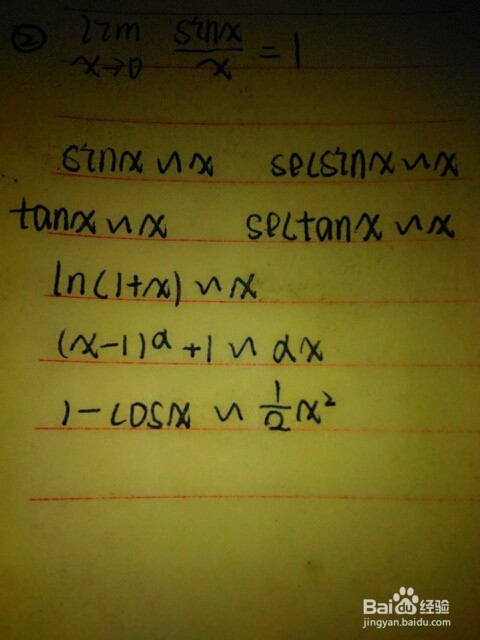 ② lim x→0 sinx/x = 1
sinx ~ x secsinx ~ x
tanx ~ x sectanx ~ x
ln(1+x) ~ x
(x-1)^α +1 ~ αx
1-cosx ~ 1/2 x²
Baidu经验
jingyan.baidu.com